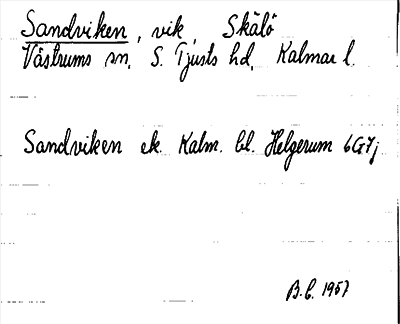 Sandviken, vik, Skälö
Västrums sn, S. Tjusts hd, Kalmar l.
Sandviken ek. Kalm. bl. Helgerum 6G7j
B.C. 1957